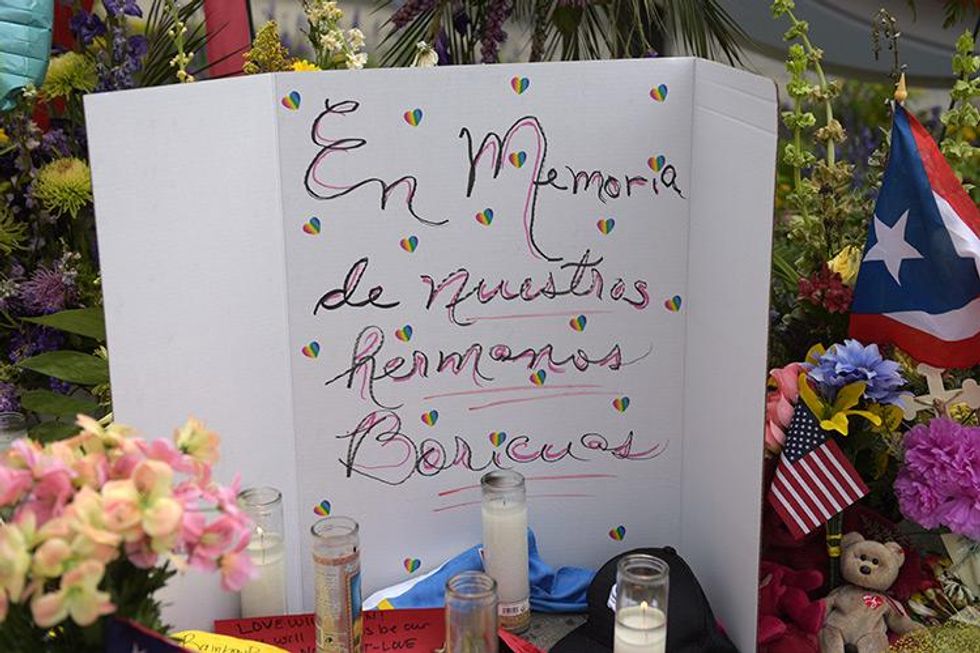 En Memoria
de nuestros
hermanos
Boricuas
LOVE WILL
will
be our
LOVE
Rainbow